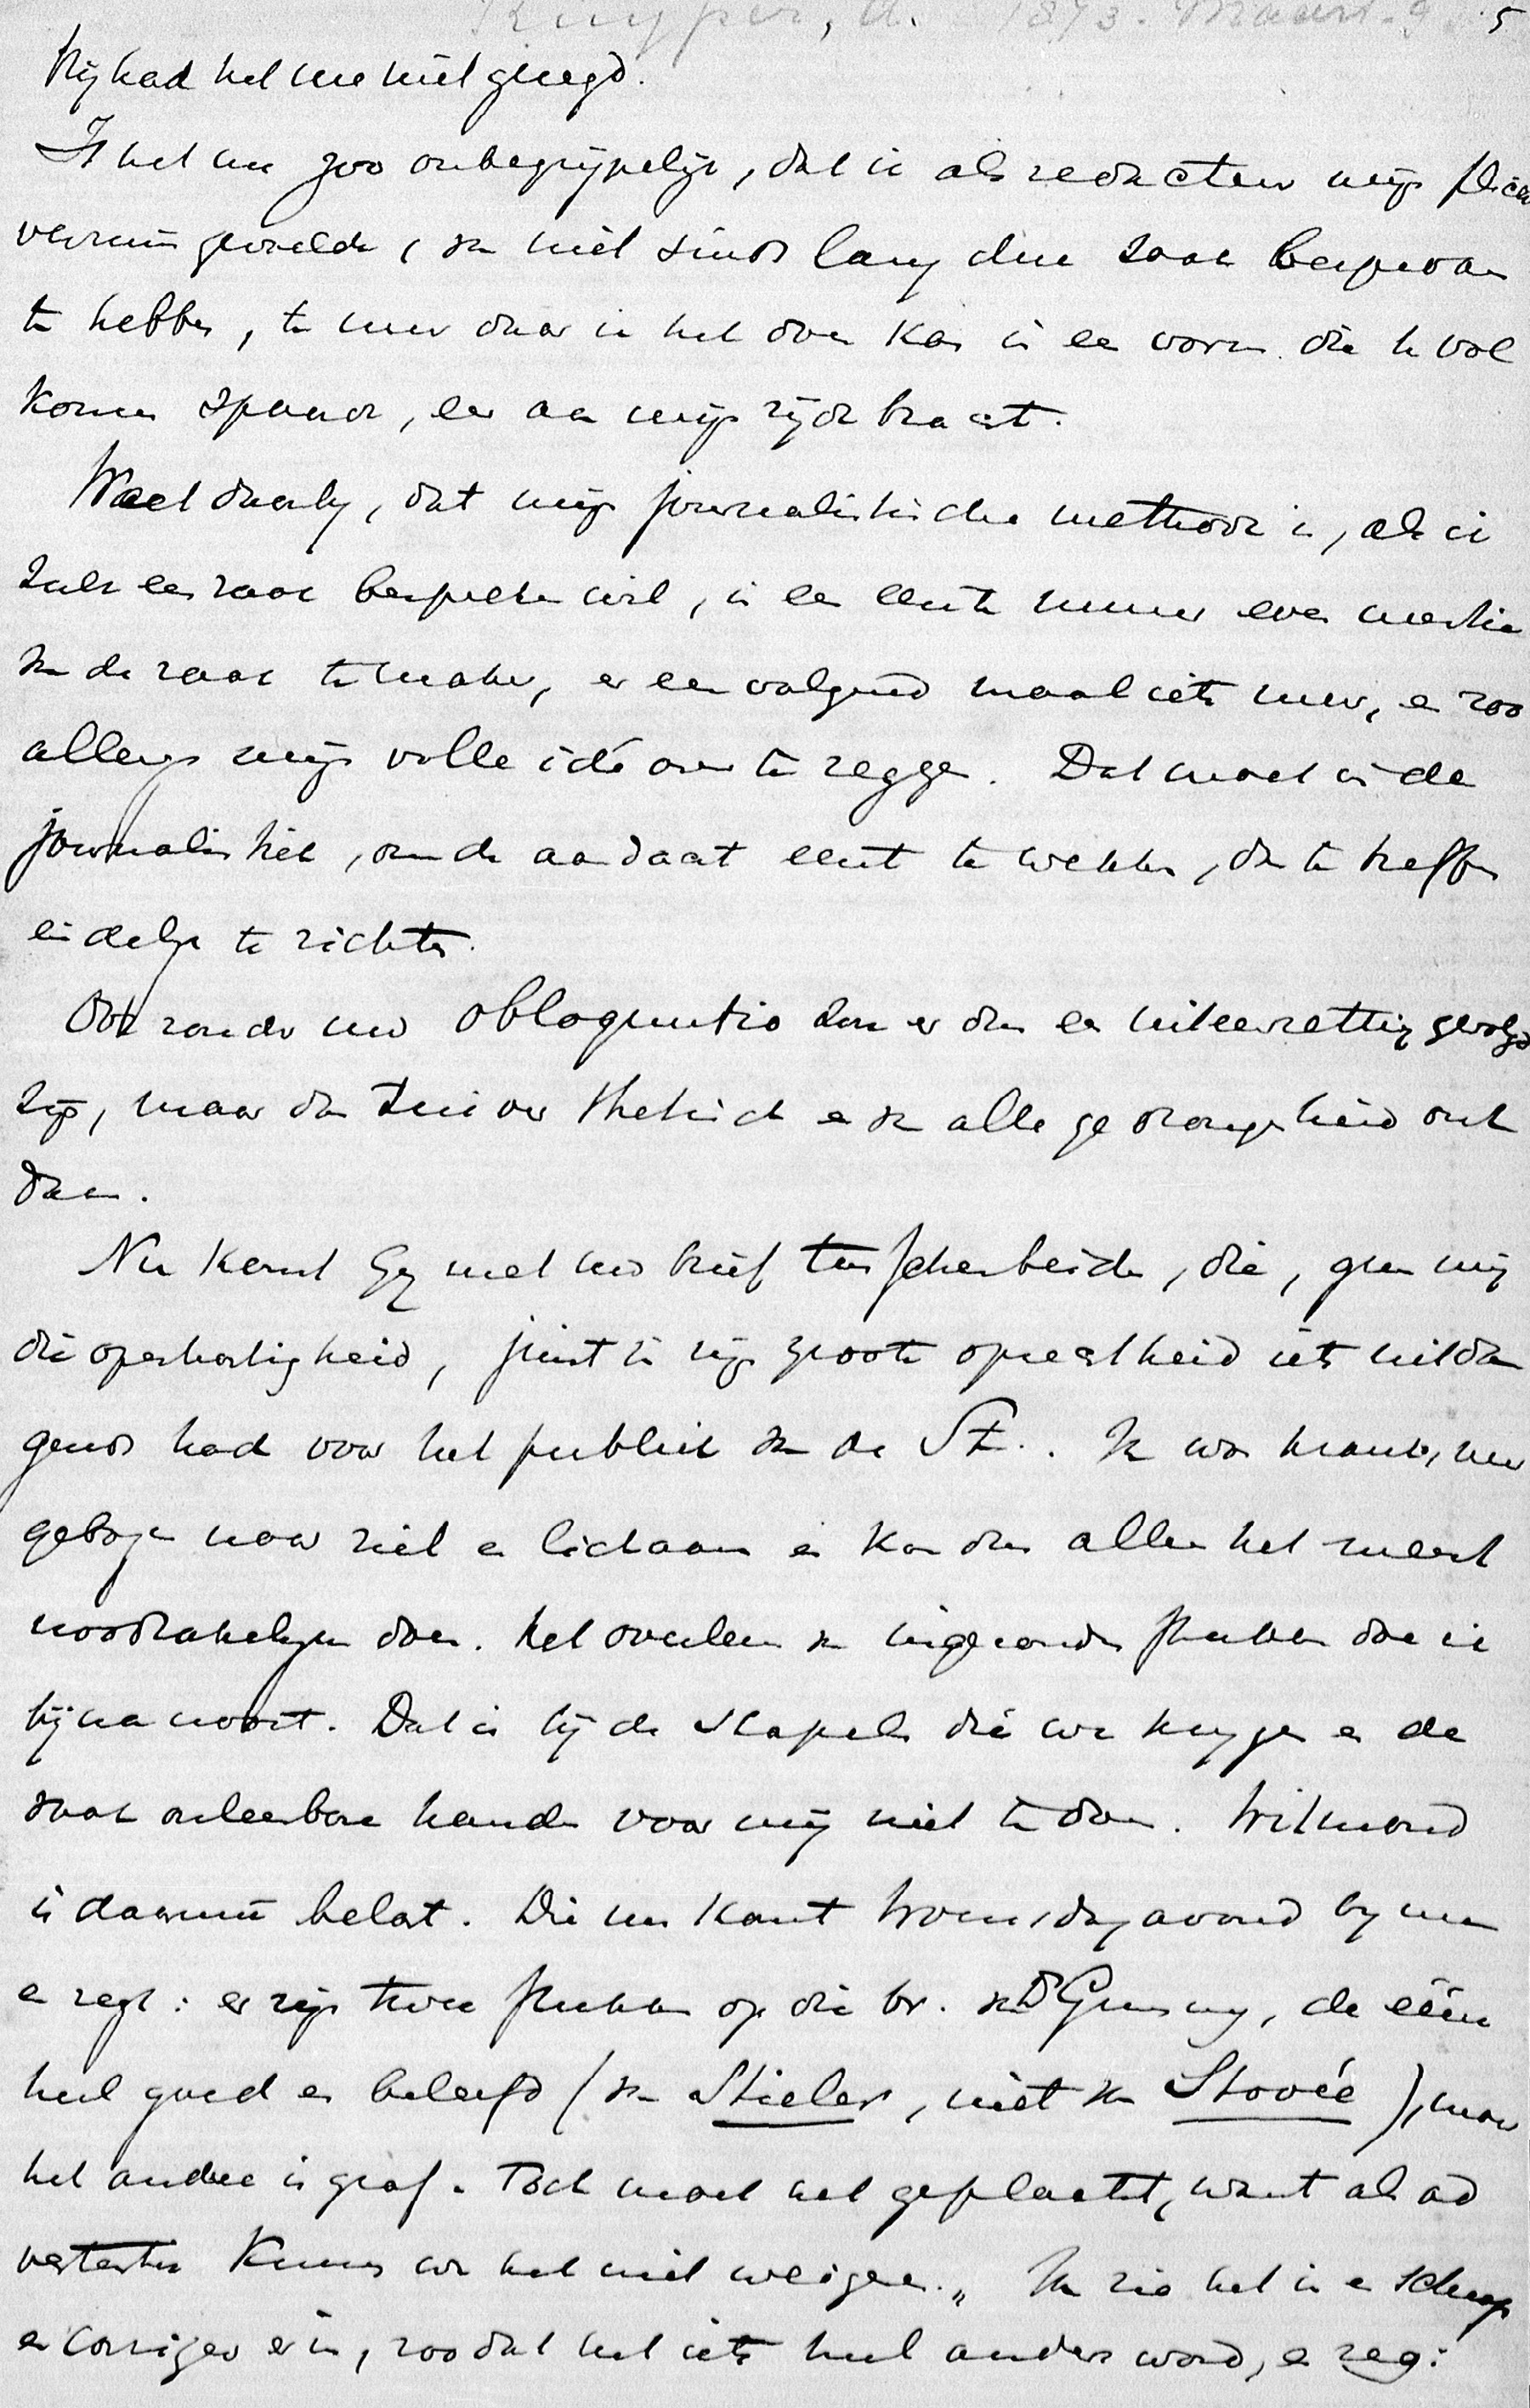 Kuyper, A. 1873. Maart. 9 5
Hij had het me niet gezegd.
Is het nu zoo onbegrijpelijk, dat ik als redacteur mijn plicht
verzuimd gevoelde, van niet sinds lang deze zaak besproken
te hebben, te meer daar ik het doen kon in een vorm die U vol
komen spaarde, en aan mijn zijde bracht.
Weet daarbij, dat mijn journalistische methode is, als ik
zulk een zaak bespreken wil, in een eerste nummer even mentie
van de zaak te maken, en een volgend maal iets meer, en zoo
allengs mijn volle idé over te zeggen. Dat moet in de
journalistiek, om de aandacht eerst te wekken, dan te treffen
eindelijk te richten.
Ook zonder uw obloquutio zou er dus een uiteenzetting gevolgd
zijn, maar dan zuiver thetisch en van alle gedrongenheid ont
daan.
Nu komt Gij met uw brief tusschenbeide, die, gun mij
die openhartigheid, juist in zijn groote oprechtheid iets uitda
gends had voor het publiek van de St.. Ik was krank, neer
gebogen naar ziel en lichaam en kon dus alleen het meest
noodzakelijke doen. Het overlezen van ingezonden stukken doe ik
bijna nooit. Dat is bij de stapels die we krijgen en de
vaak onleesbare handen voor mij niet te doen. Witmond
is daarmeê belast. Die nu komt Woensdagavond bij me
en zegt: er zijn twee stukken op die br. van Dr Gunning, de één
heel goed en beleefd (van Stieler, niet van Stovée), maar
het andere is grof. Toch moet het geplaatst, want als ad
vertentie kunnen we het niet weigeren." Ik zie het in en schrap
en corrigeer er in, zoodat het iets heel anders word, en zeg: